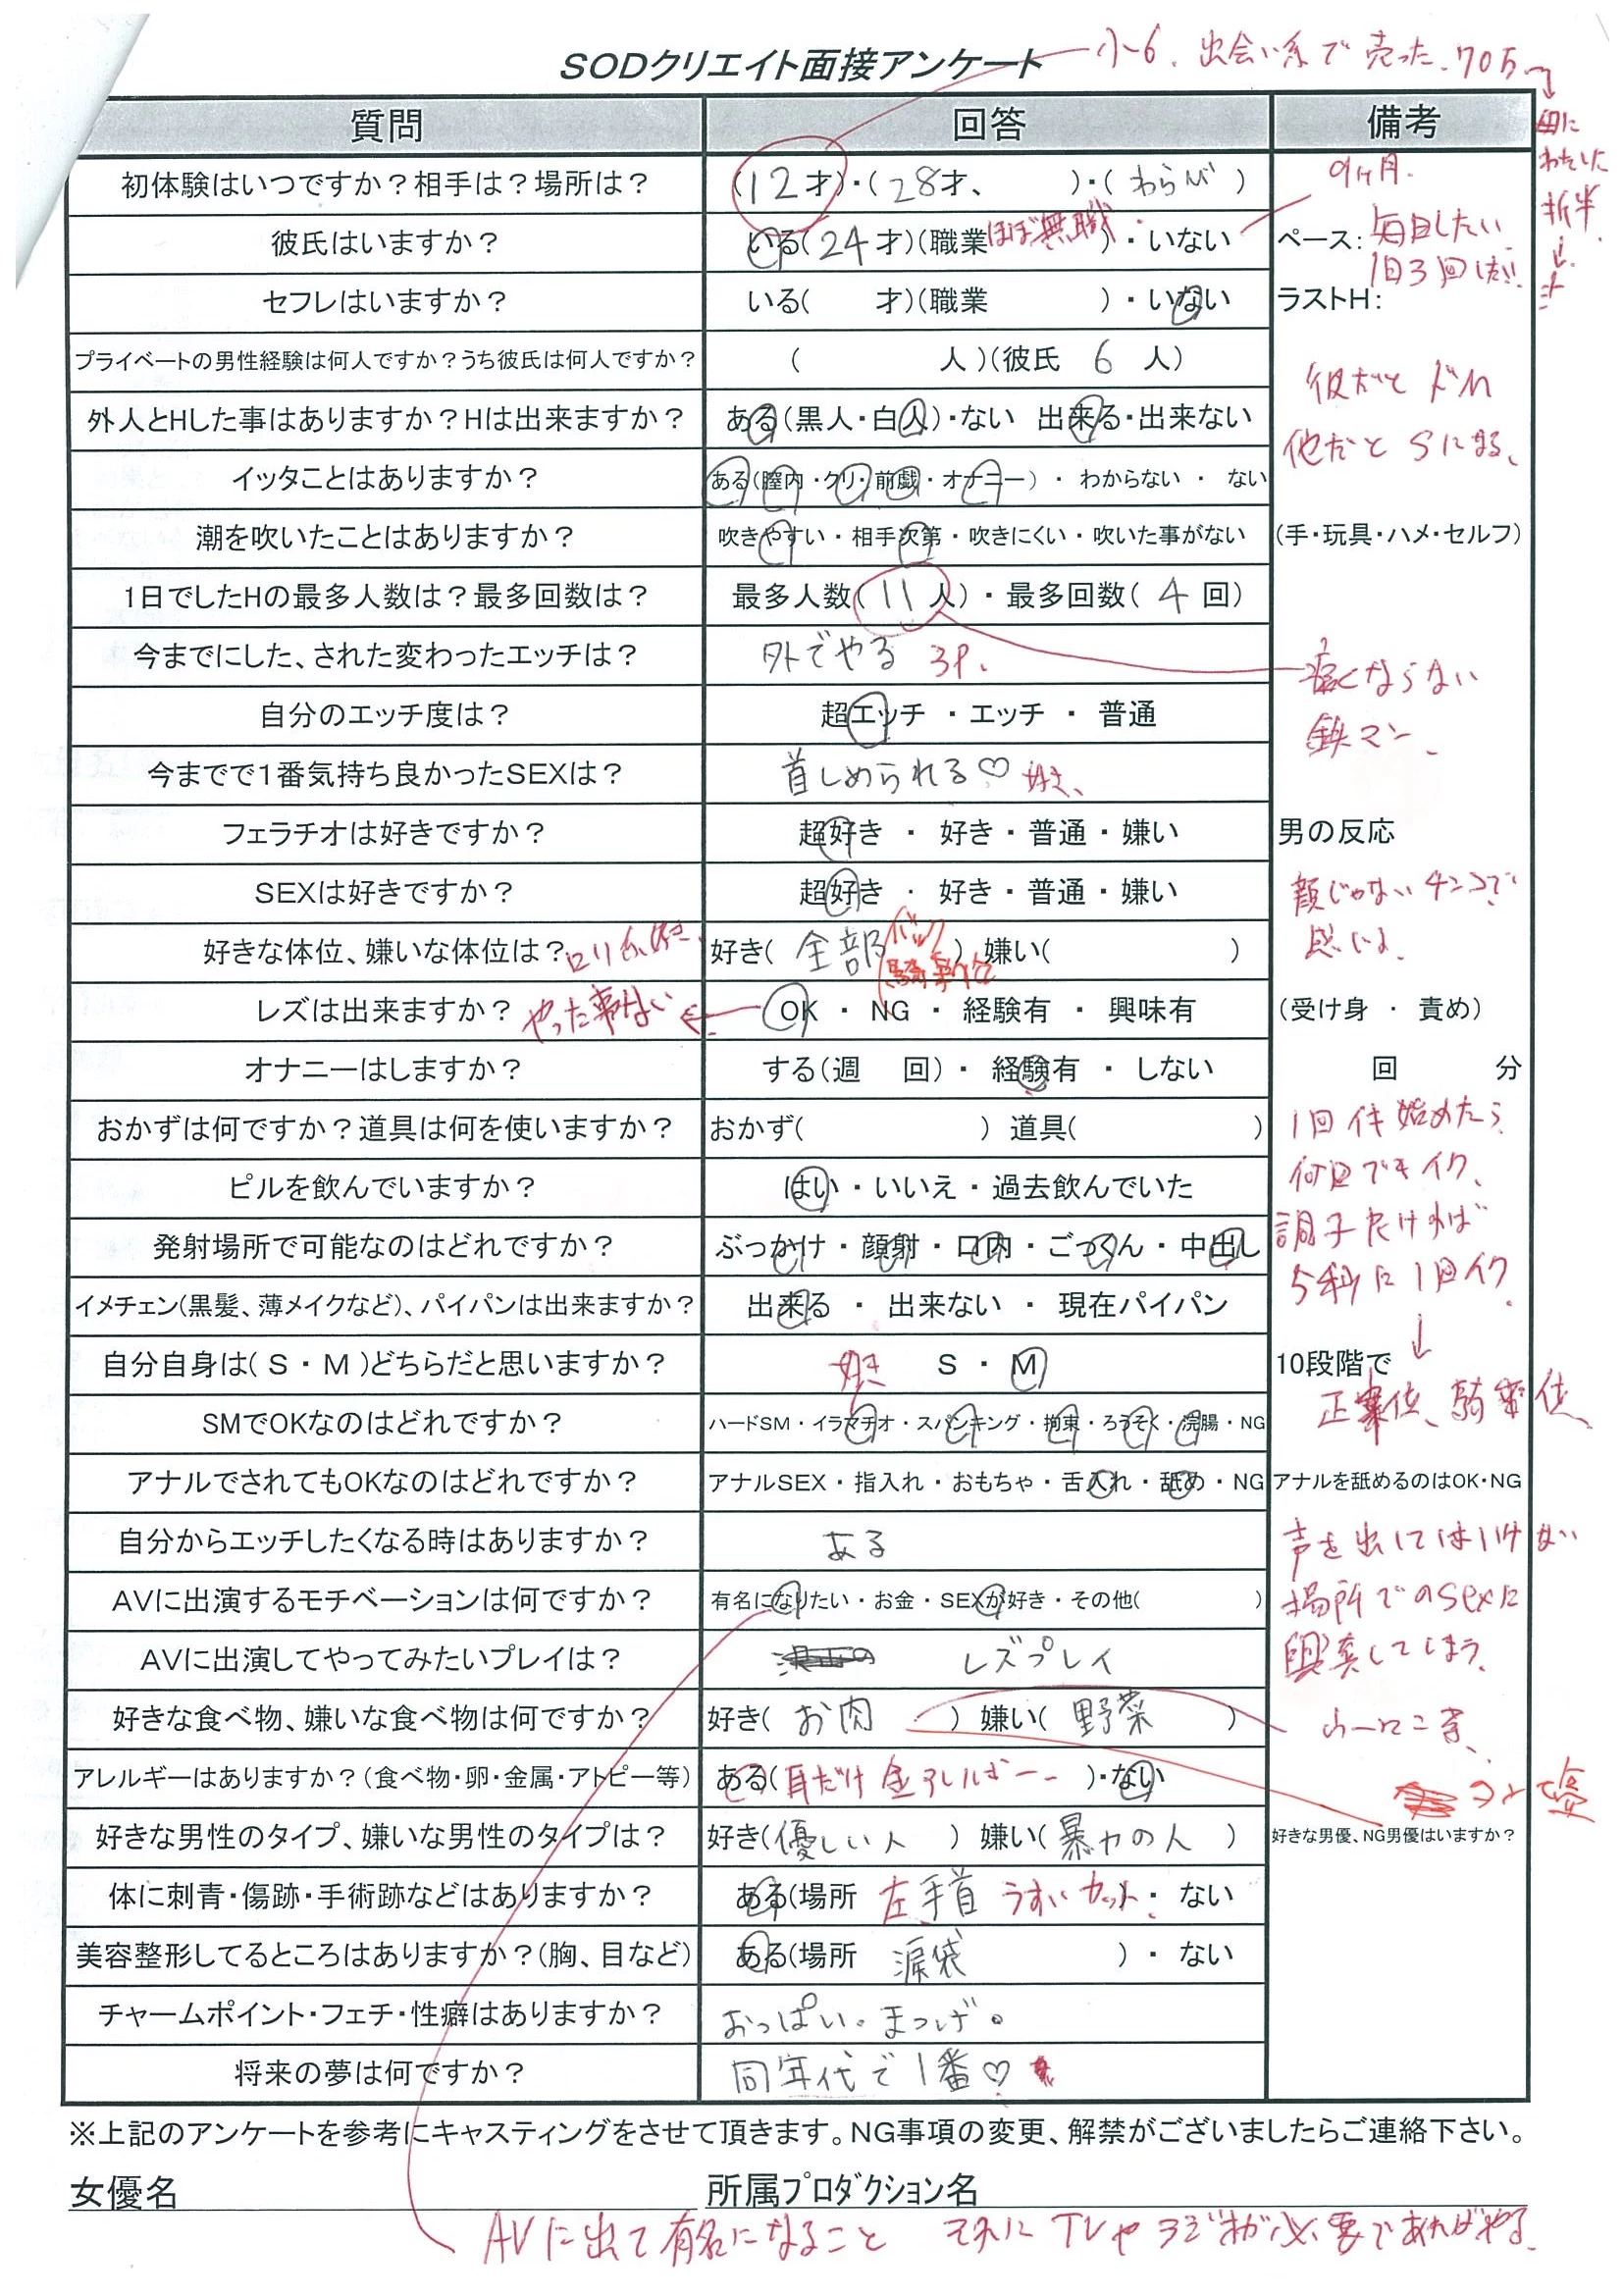 SODクリエイト面接アンケート
小6、出会い系で売った、70万
母に
わたした
折半
質問 回答 備考
初体験はいつですか？相手は？場所は？ (12才)・(28才、 )・(わらび)
9ヶ月
彼氏はいますか？ いる(24才)(職業 ほぼ無職 )・いない ペース：毎日したい
1日3回
セフレはいますか？ いる( 才)(職業 )・いない ラストH：
プライベートの男性経験は何人ですか？うち彼氏は何人ですか？ ( 人)(彼氏 6 人)
彼だとドM
外人とHした事はありますか？Hは出来ますか？ ある(黒人・白人)・ない 出来る・出来ない
他だとSになる、
イッタことはありますか？ ある(膣内・クリ・前戯・オナニー)・わからない・ない
潮を吹いたことはありますか？ 吹きやすい・相手次第・吹きにくい・吹いた事がない (手・玩具・ハメ・セルフ)
1日でしたHの最多人数は？最多回数は？ 最多人数(11人)・最多回数(4回)
今までにした、された変わったエッチは？ 外でやる 3P、
痛くならない
自分のエッチ度は？ 超エッチ・エッチ・普通
鉄マン、
今までで1番気持ち良かったSEXは？ 首しめられる♡ 好き、
フェラチオは好きですか？ 超好き・好き・普通・嫌い 男の反応
SEXは好きですか？ 超好き・好き・普通・嫌い
顔じゃないチンコで
好きな体位、嫌いな体位は？ 好き(全部 バック 騎乗位) 嫌い( )
ロリ系好き、
レズは出来ますか？ やった事ない OK・NG・経験有・興味有 (受け身・責め)
オナニーはしますか？ する(週 回)・経験有・しない 回 分
おかずは何ですか？道具は何を使いますか？ おかず( ) 道具( )
1回イキ始めたら
何回でもイク、
ピルを飲んでいますか？ はい・いいえ・過去飲んでいた
調子だければ
発射場所で可能なのはどれですか？ ぶっかけ・顔射・口内・ごっくん・中出し
5秒に1回イク
イメチェン(黒髪、薄メイクなど)、パイパンは出来ますか？ 出来る・出来ない・現在パイパン
自分自身は(S・M)どちらだと思いますか？ S・M 10段階で
好き
正常位、騎乗位、
SMでOKなのはどれですか？ ハードSM・イラマチオ・スパンキング・拘束・ろうそく・浣腸・NG
アナルでされてもOKなのはどれですか？ アナルSEX・指入れ・おもちゃ・舌入れ・舐め・NG アナルを舐めるのはOK・NG
自分からエッチしたくなる時はありますか？ ある
声を出してはいけない
場所でのSexに
興奮してしまう、
AVに出演するモチベーションは何ですか？ 有名になりたい・お金・SEXが好き・その他( )
AVに出演してやってみたいプレイは？ レズプレイ
好きな食べ物、嫌いな食べ物は何ですか？ 好き(お肉) 嫌い(野菜)
アレルギーはありますか？(食べ物・卵・金属・アトピー等) ある(耳だけ金アレルギー)・ない
好きな男性のタイプ、嫌いな男性のタイプは？ 好き(優しい人) 嫌い(暴力の人) 好きな男優、NG男優はいますか？
体に刺青・傷跡・手術跡などはありますか？ ある(場所 左手首 うすいカット)・ない
美容整形してるところはありますか？(胸、目など) ある(場所 涙袋 )・ない
チャームポイント・フェチ・性癖はありますか？ おっぱい。まつげ。
将来の夢は何ですか？ 同年代で1番♡
※上記のアンケートを参考にキャスティングをさせて頂きます。NG事項の変更、解禁がございましたらご連絡下さい。
女優名 所属プロダクション名
AVに出て有名になること それにTVやラジオが必要であればやる、